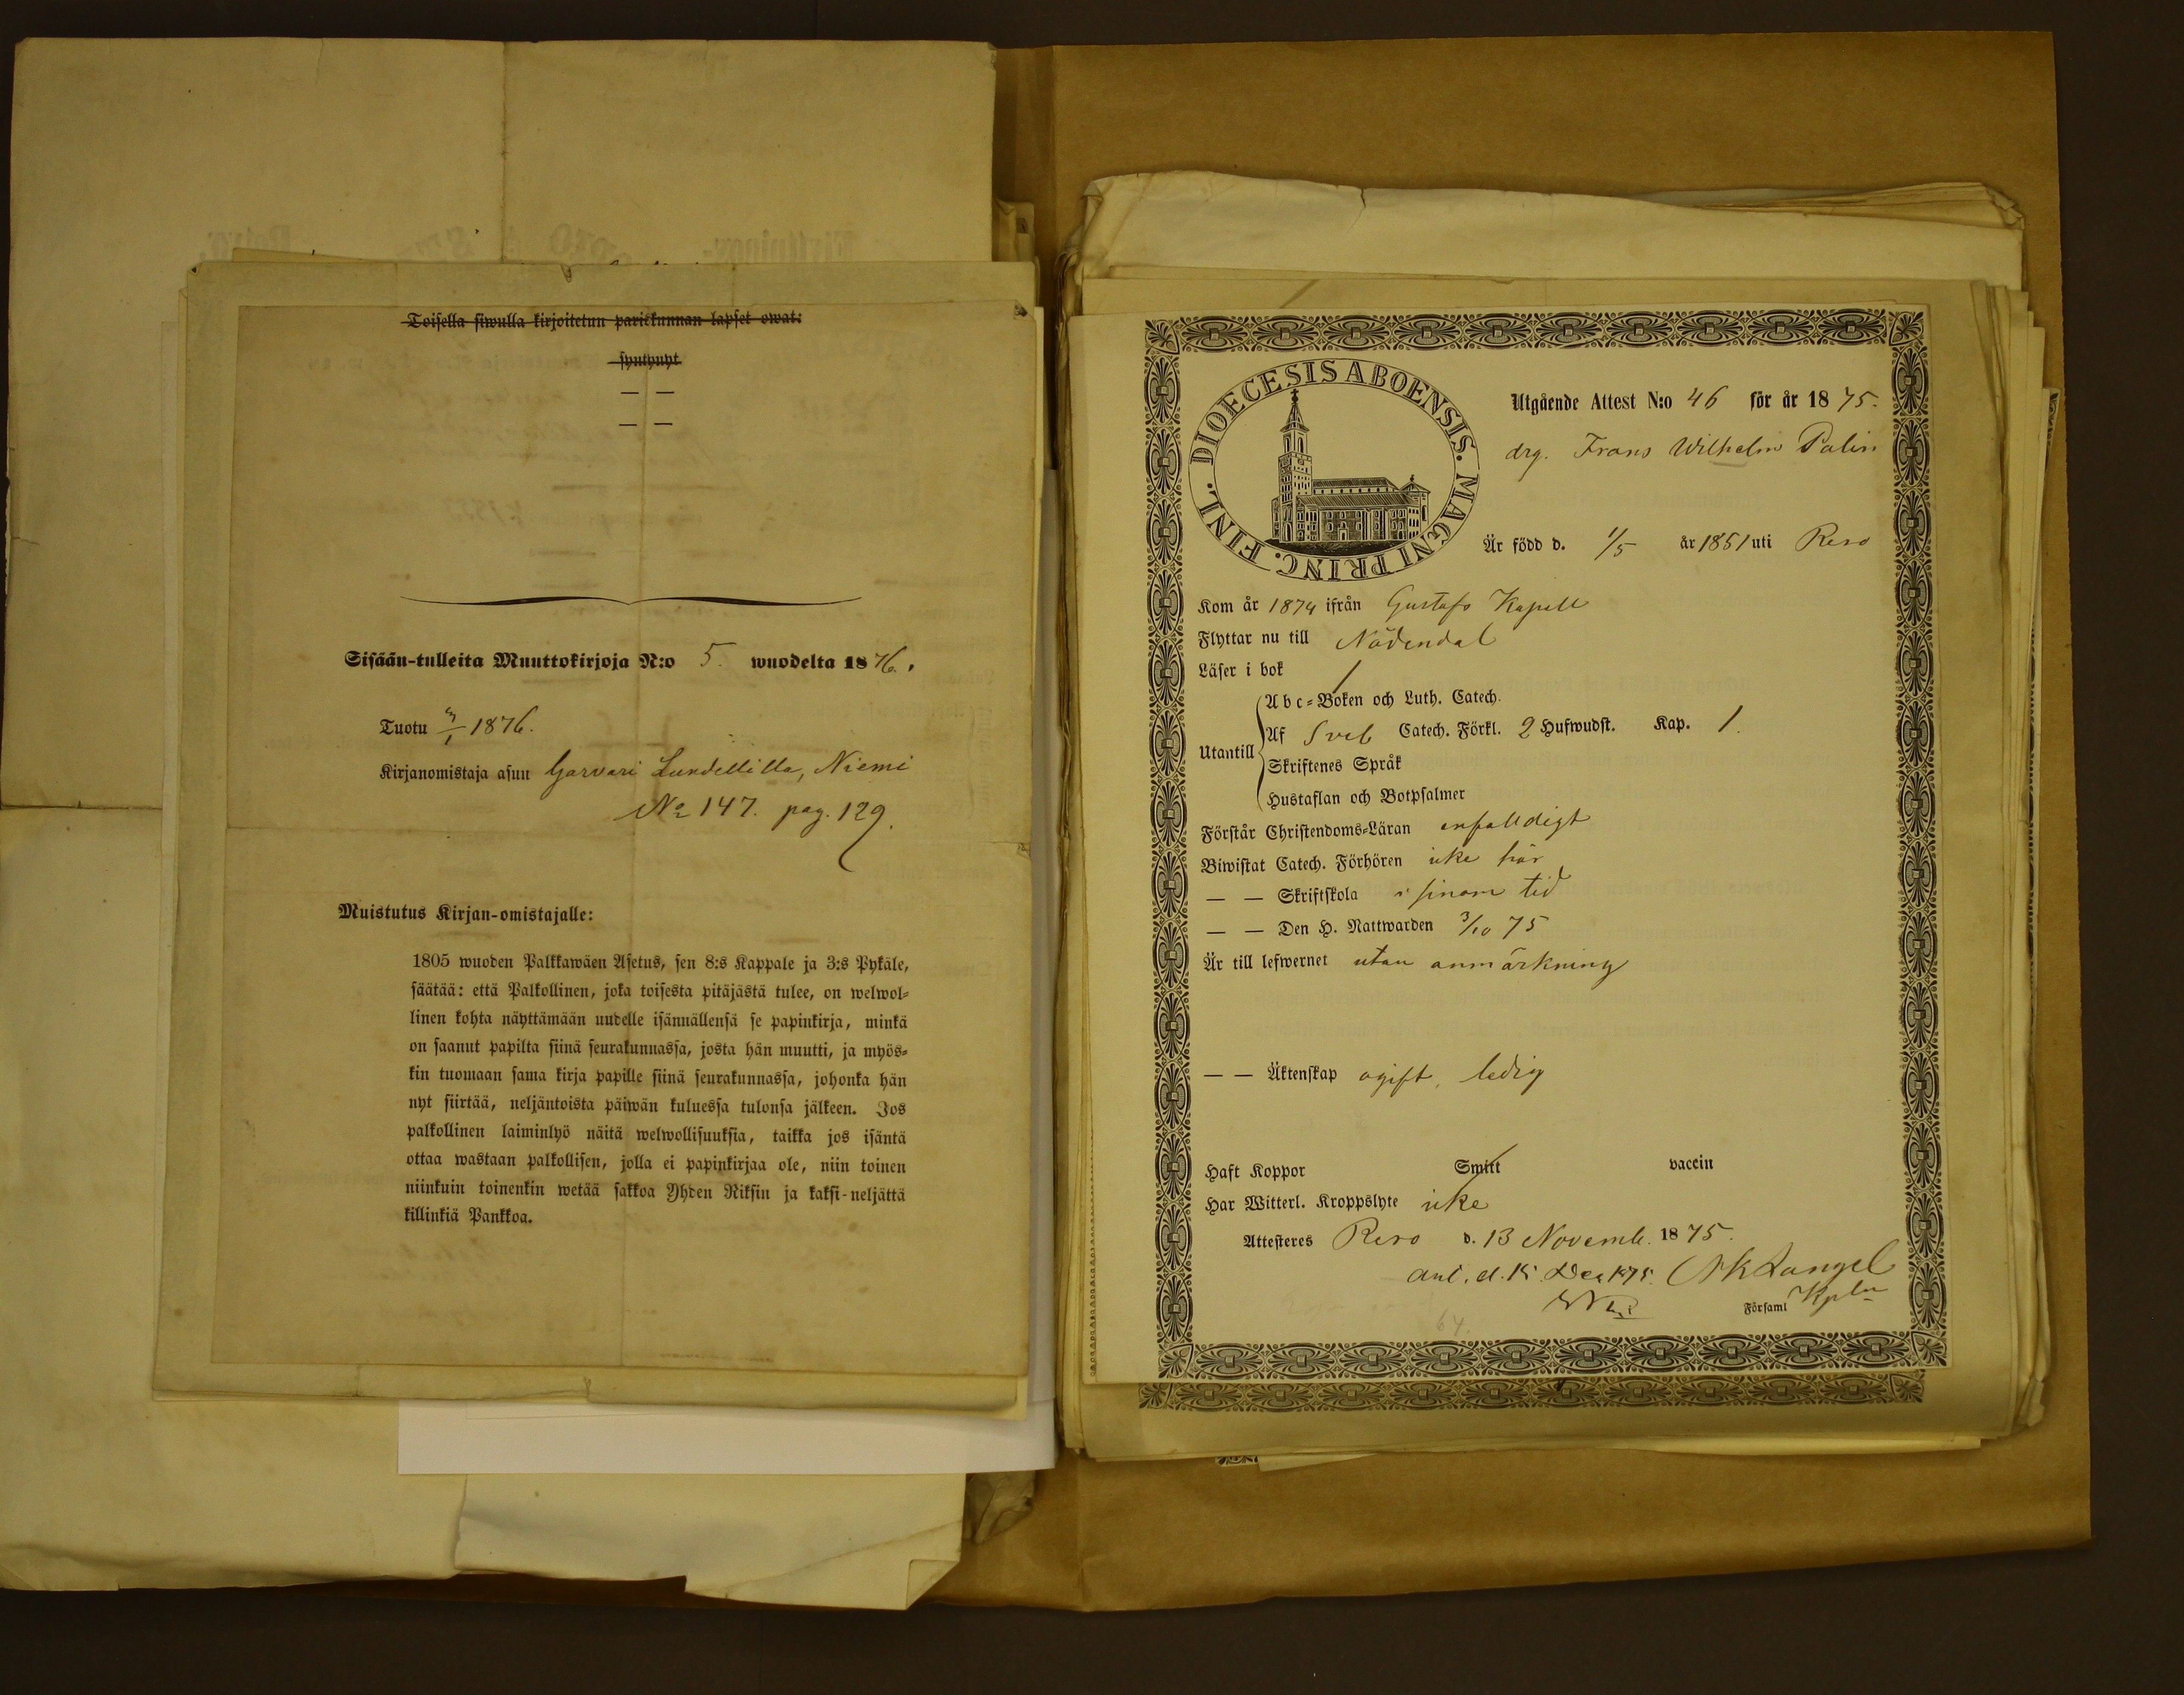 Toisella siwulla kirjoitetun pariskunnan lapset owat:
syntynyt
— —
— —
Sisään-tulleita Muuttokirjoja N:o 5. wuodelta 1876.
Tuotu 3/1 1876.
Kirjanomistaja asuu Garvari Lundellilla, Niemi
No 147. pag. 129.
Muistutus Kirjan-omistajalle:
1805 wuoden Palkkawäen Asetus, sen 8:s Kappale ja 3:s Pykäle,
säätää: että Palkollinen, joka toisesta pitäjästä tulee, on welwol-
linen kohta näyttämään uudelle isännällensä se papinkirja, minkä
on saanut papilta siinä seurakunnassa, josta hän muutti, ja myös-
kin tuomaan sama kirja papille siinä seurakunnassa, johonka hän
nyt siirtää, neljäntoista päiwän kuluessa tulonsa jälkeen. Jos
palkollinen laiminlyö näitä welwollisuuksia, taikka jos isäntä
ottaa wastaan palkollisen, jolla ei papinkirjaa ole, niin toinen
niinkuin toinenkin wetää sakkoa Yhden Riksin ja kaksi-neljättä
killinkiä Pankkoa.
DIOECESIS ABOENSIS. MAGNI PRINC. FINL.
Utgående Attest N:o 46 för år 1875.
drg. Frans Wilhelm Palin
Är född d. 1/5 år 1851 uti Reso
Kom år 1874 ifrån Gustafs Kapell
Flyttar nu till Nådendal
Läser i bok /
Utantill
Abc-Boken och Luth. Catech.
Af Sveb Catech. Förkl. 2 Hufwudst. Kap. 1.
Skriftenes Språk
Hustaflan och Botpsalmer
Förstår Christendoms-Läran enfalldigt
Biwistat Catech. Förhören icke här
— — Skriftskola i sinom tid
— — Den H. Nattwarden 3/10 75
Är till lefwernet utan anmärkning
— — Äktenskap ogift, ledig
Haft Koppor Smitt vaccin
Har Witterl. Kroppslyte icke
Attesteres Reso d. 13 Novemb. 1875.
Anl. d. 15 Dec 1875.
Församl Kpln
64.